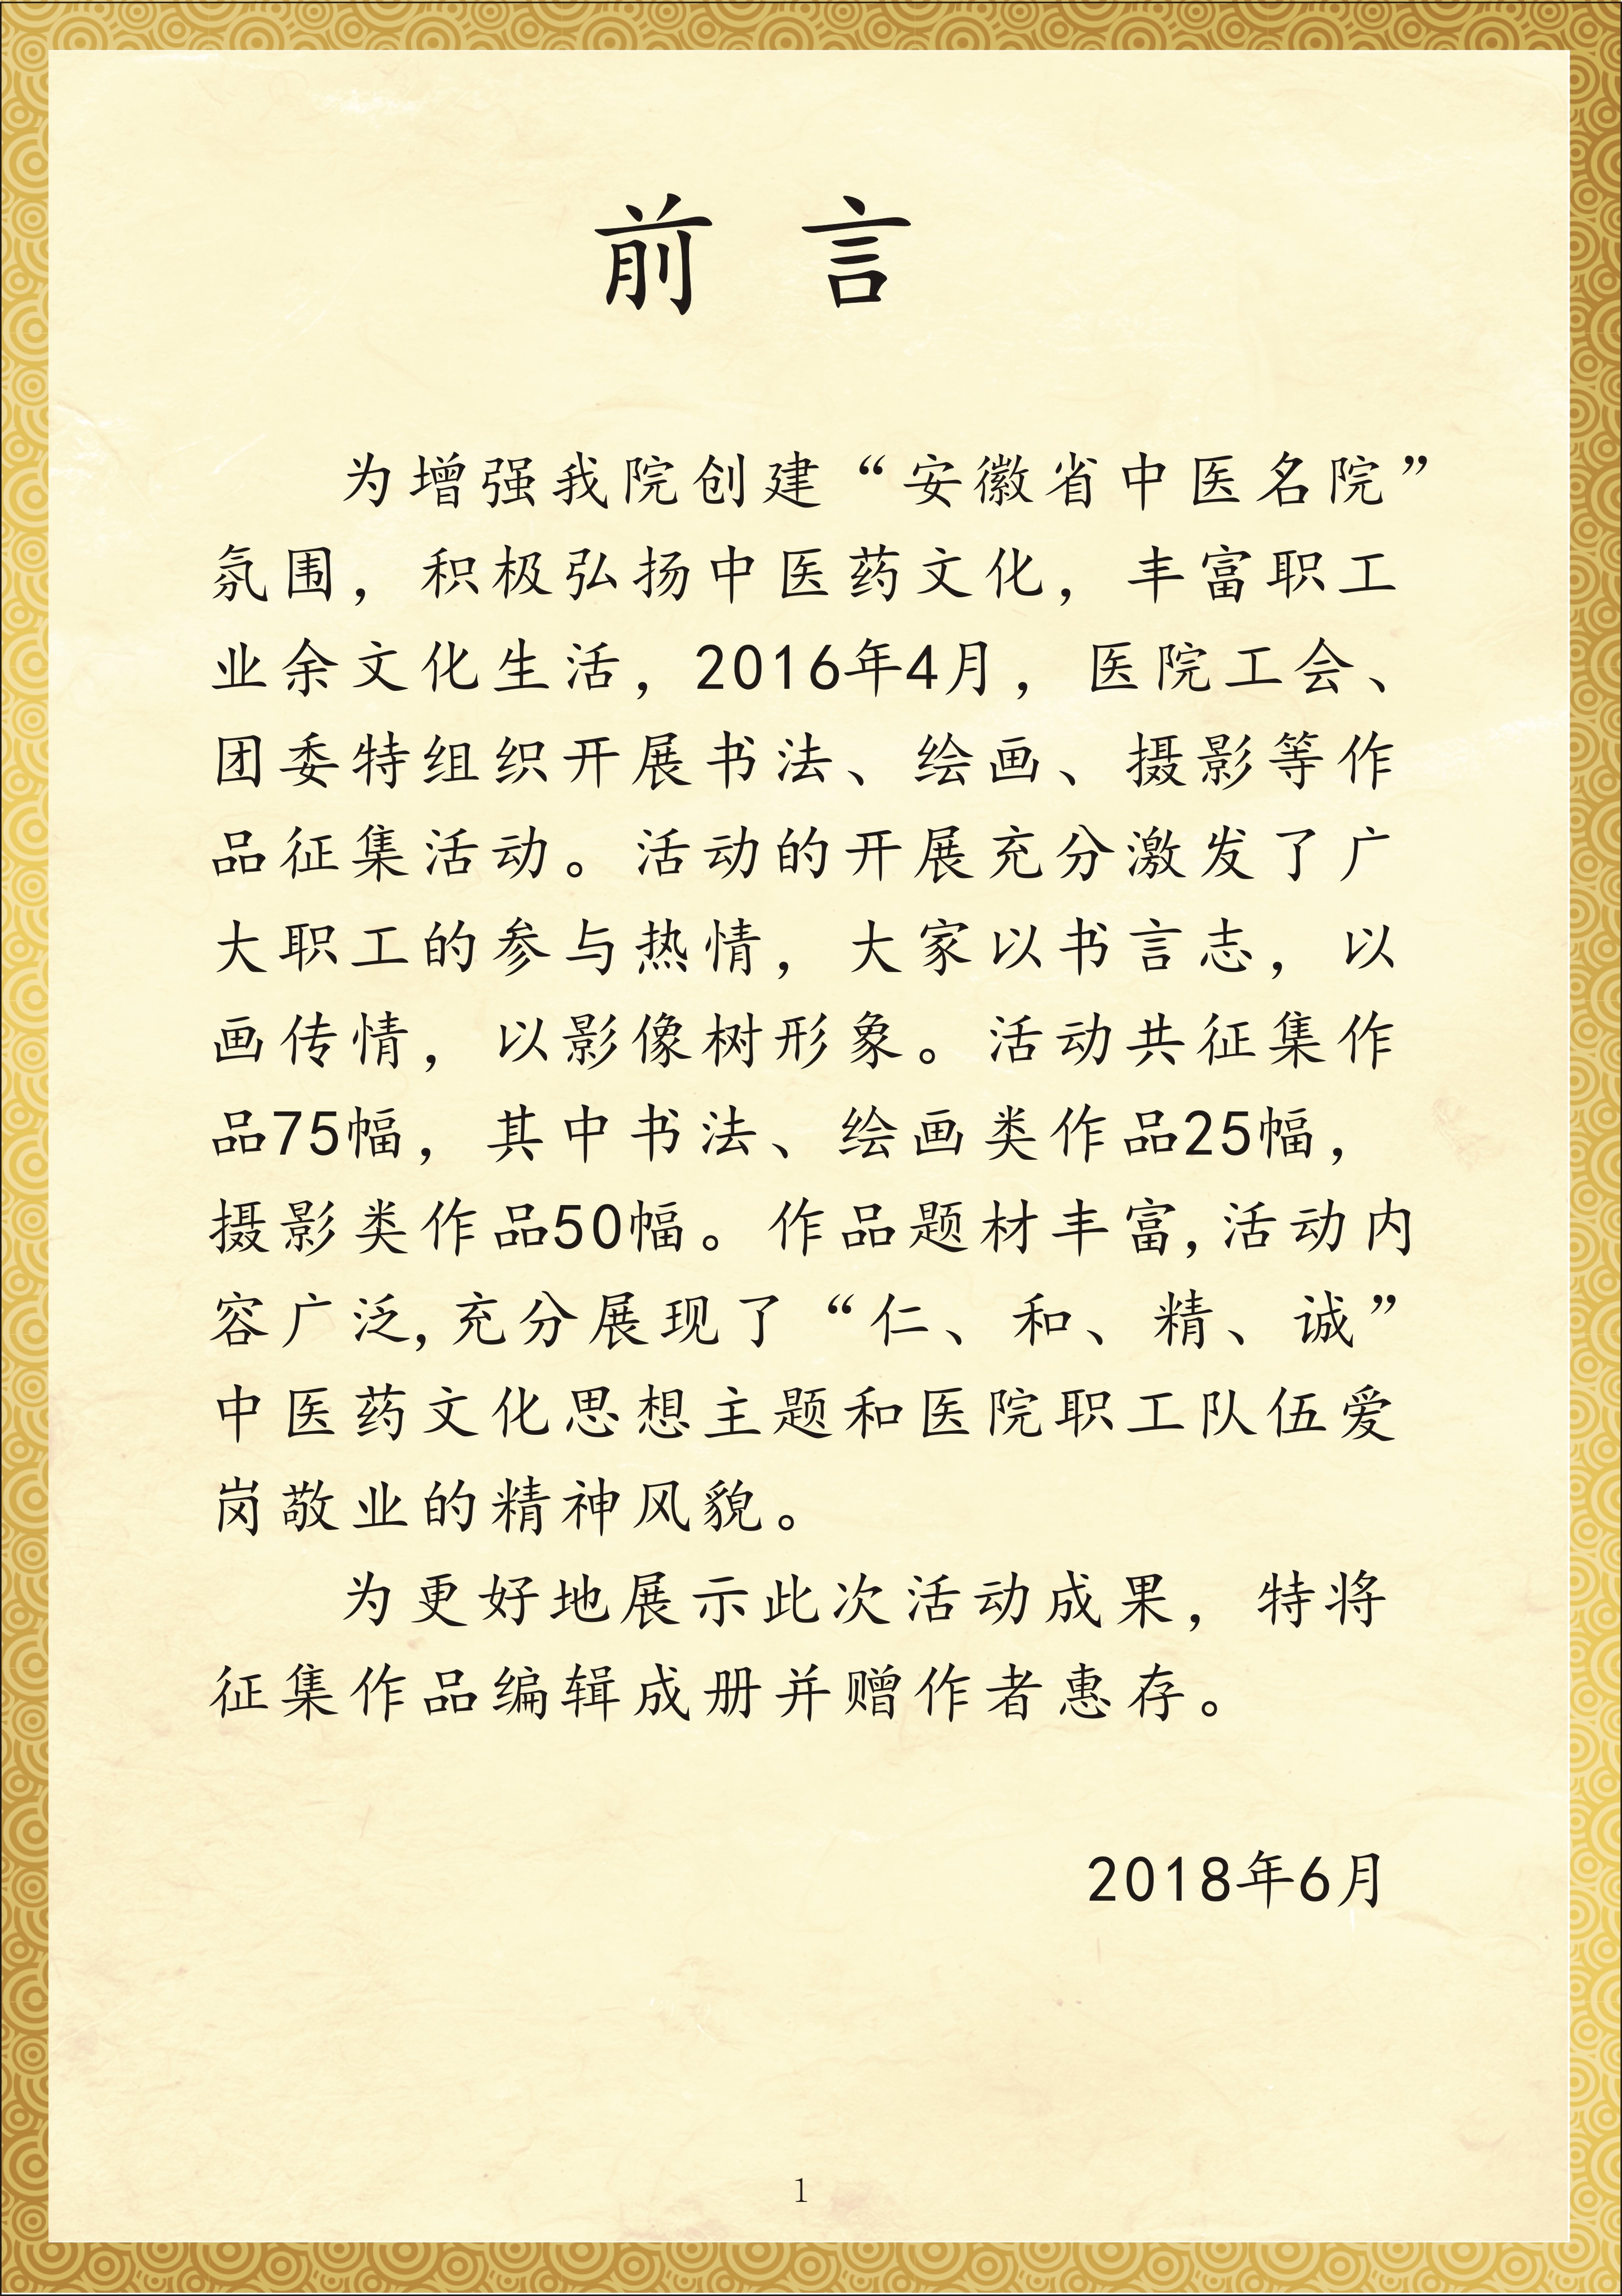 前 言
为增强我院创建“安徽省中医名院”
氛围，积极弘扬中医药文化，丰富职工
业余文化生活，2016年4月，医院工会、
团委特组织开展书法、绘画、摄影等作
品征集活动。活动的开展充分激发了广
大职工的参与热情，大家以书言志，以
画传情，以影像树形象。活动共征集作
品75幅，其中书法、绘画类作品25幅，
摄影类作品50幅。作品题材丰富,活动内
容广泛,充分展现了“仁、和、精、诚”
中医药文化思想主题和医院职工队伍爱
岗敬业的精神风貌。
为更好地展示此次活动成果，特将
征集作品编辑成册并赠作者惠存。
2018年6月
1